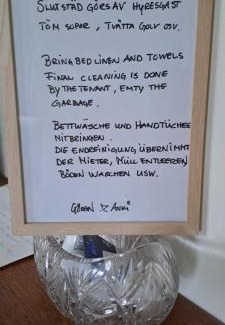 SLUTSTÄD GÖRS AV HYRESGÄST
TÖM SOPOR, TVÄTTA GOLV OSV.
BRING BED LINEN AND TOWELS
FINAL CLEANING IS DONE
BY THE TENANT, EMTY THE
GARBAGE.
BETTWÄSCHE UND HANDTÜCHER
MITBRINGEN.
DIE ENDREINIGUNG ÜBERNIMMT
DER MIETER, MÜLL ENTLEEREN
BÖDEN WASCHEN USW.
GÖRAN & ANKI